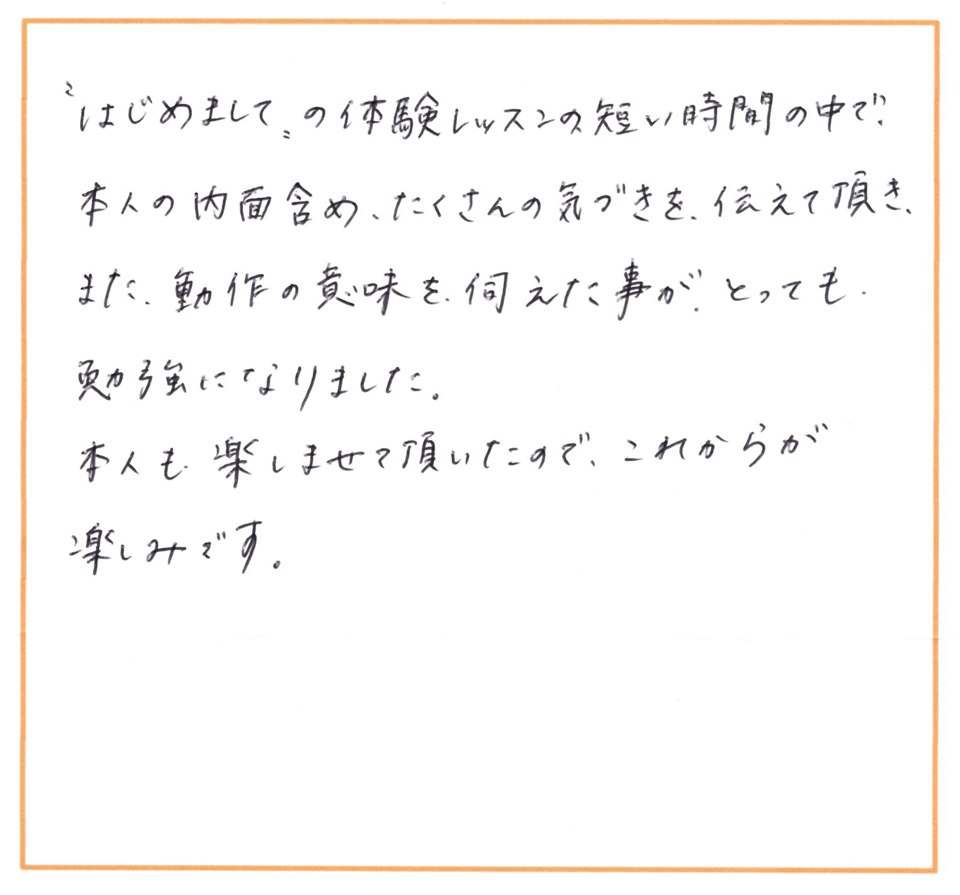 〝はじめまして〟の体験レッスンの、短い時間の中で、
本人の内面含め、たくさんの気づきを、伝えて頂き、
また、動作の意味を、伺えた事が、とっても、
勉強になりました。
本人も、楽しませて頂いたので、これからが
楽しみです。